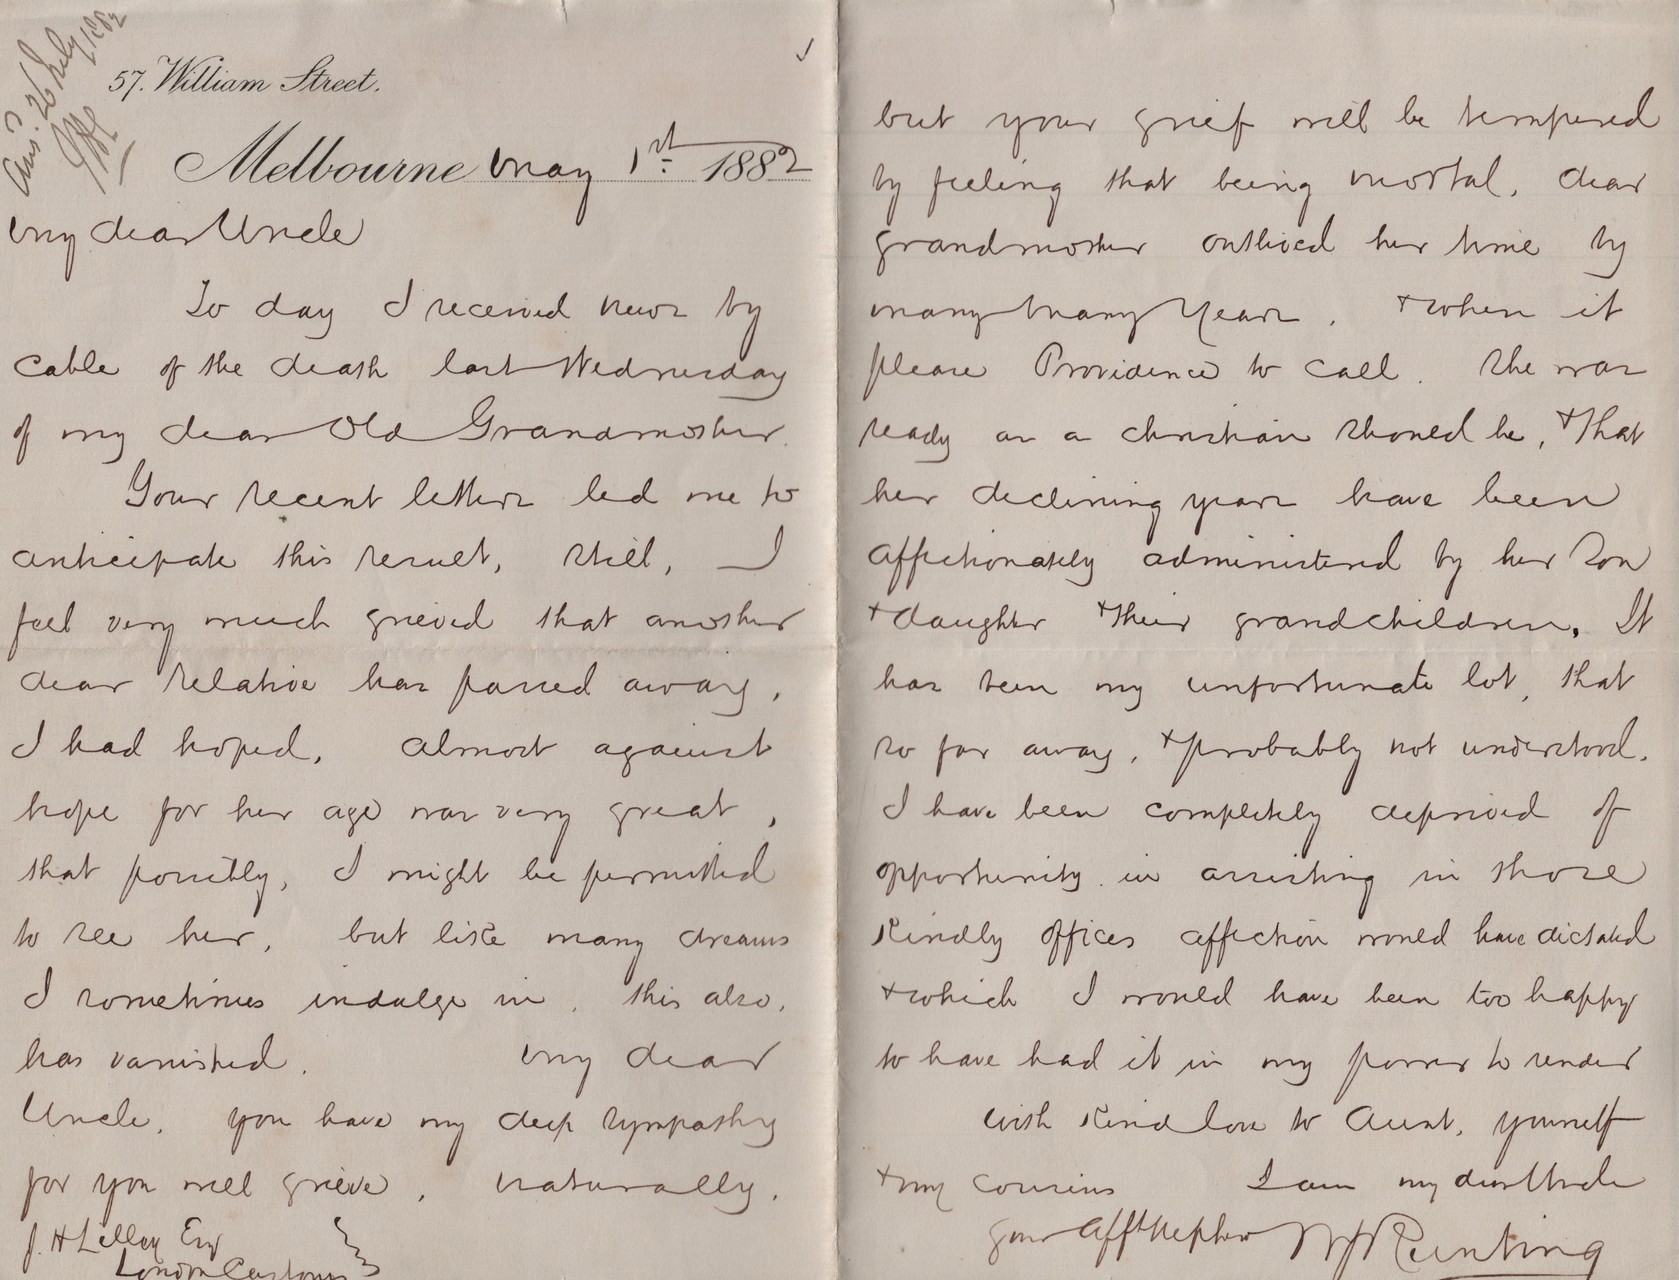 Ans? 26 July 1882
57. William Street.
Melbourne May 1st 1882
My dear Uncle
To day I received news by
cable of the death last Wednesday
of my dear Old Grandmother.
Your recent letters led me to
anticipate this result, still, I
feel very much grieved that another
dear relative has passed away,
I had hoped, almost against
hope for her age was very great,
that possibly, I might be permitted
to see her, but like many dreams
I sometimes indulge in, this also,
has vanished. My dear
Uncle, you have my deep sympathy
for you will grieve, naturally,
J. H Lilley Esq
London Customs
but your grief will be tempered
by feeling that being mortal, dear
grandmother outlived her time by
many many years, + when it
please Providence to call. She was
ready as a christian should be, + that
her declining years have been
affectionately administered by her Son
+ daughter + their grandchildren. It
has been my unfortunate lot, that
so far away, + probably not understood,
I have been completely deprived of
opportunity in assisting in those
Kindly offices affection would have dictated
+ which I would have been too happy
to have had it in my power to render
With kind love to Aunt, yourself
+ my cousins I am my dear Uncle
your afft Nephew W J Runting